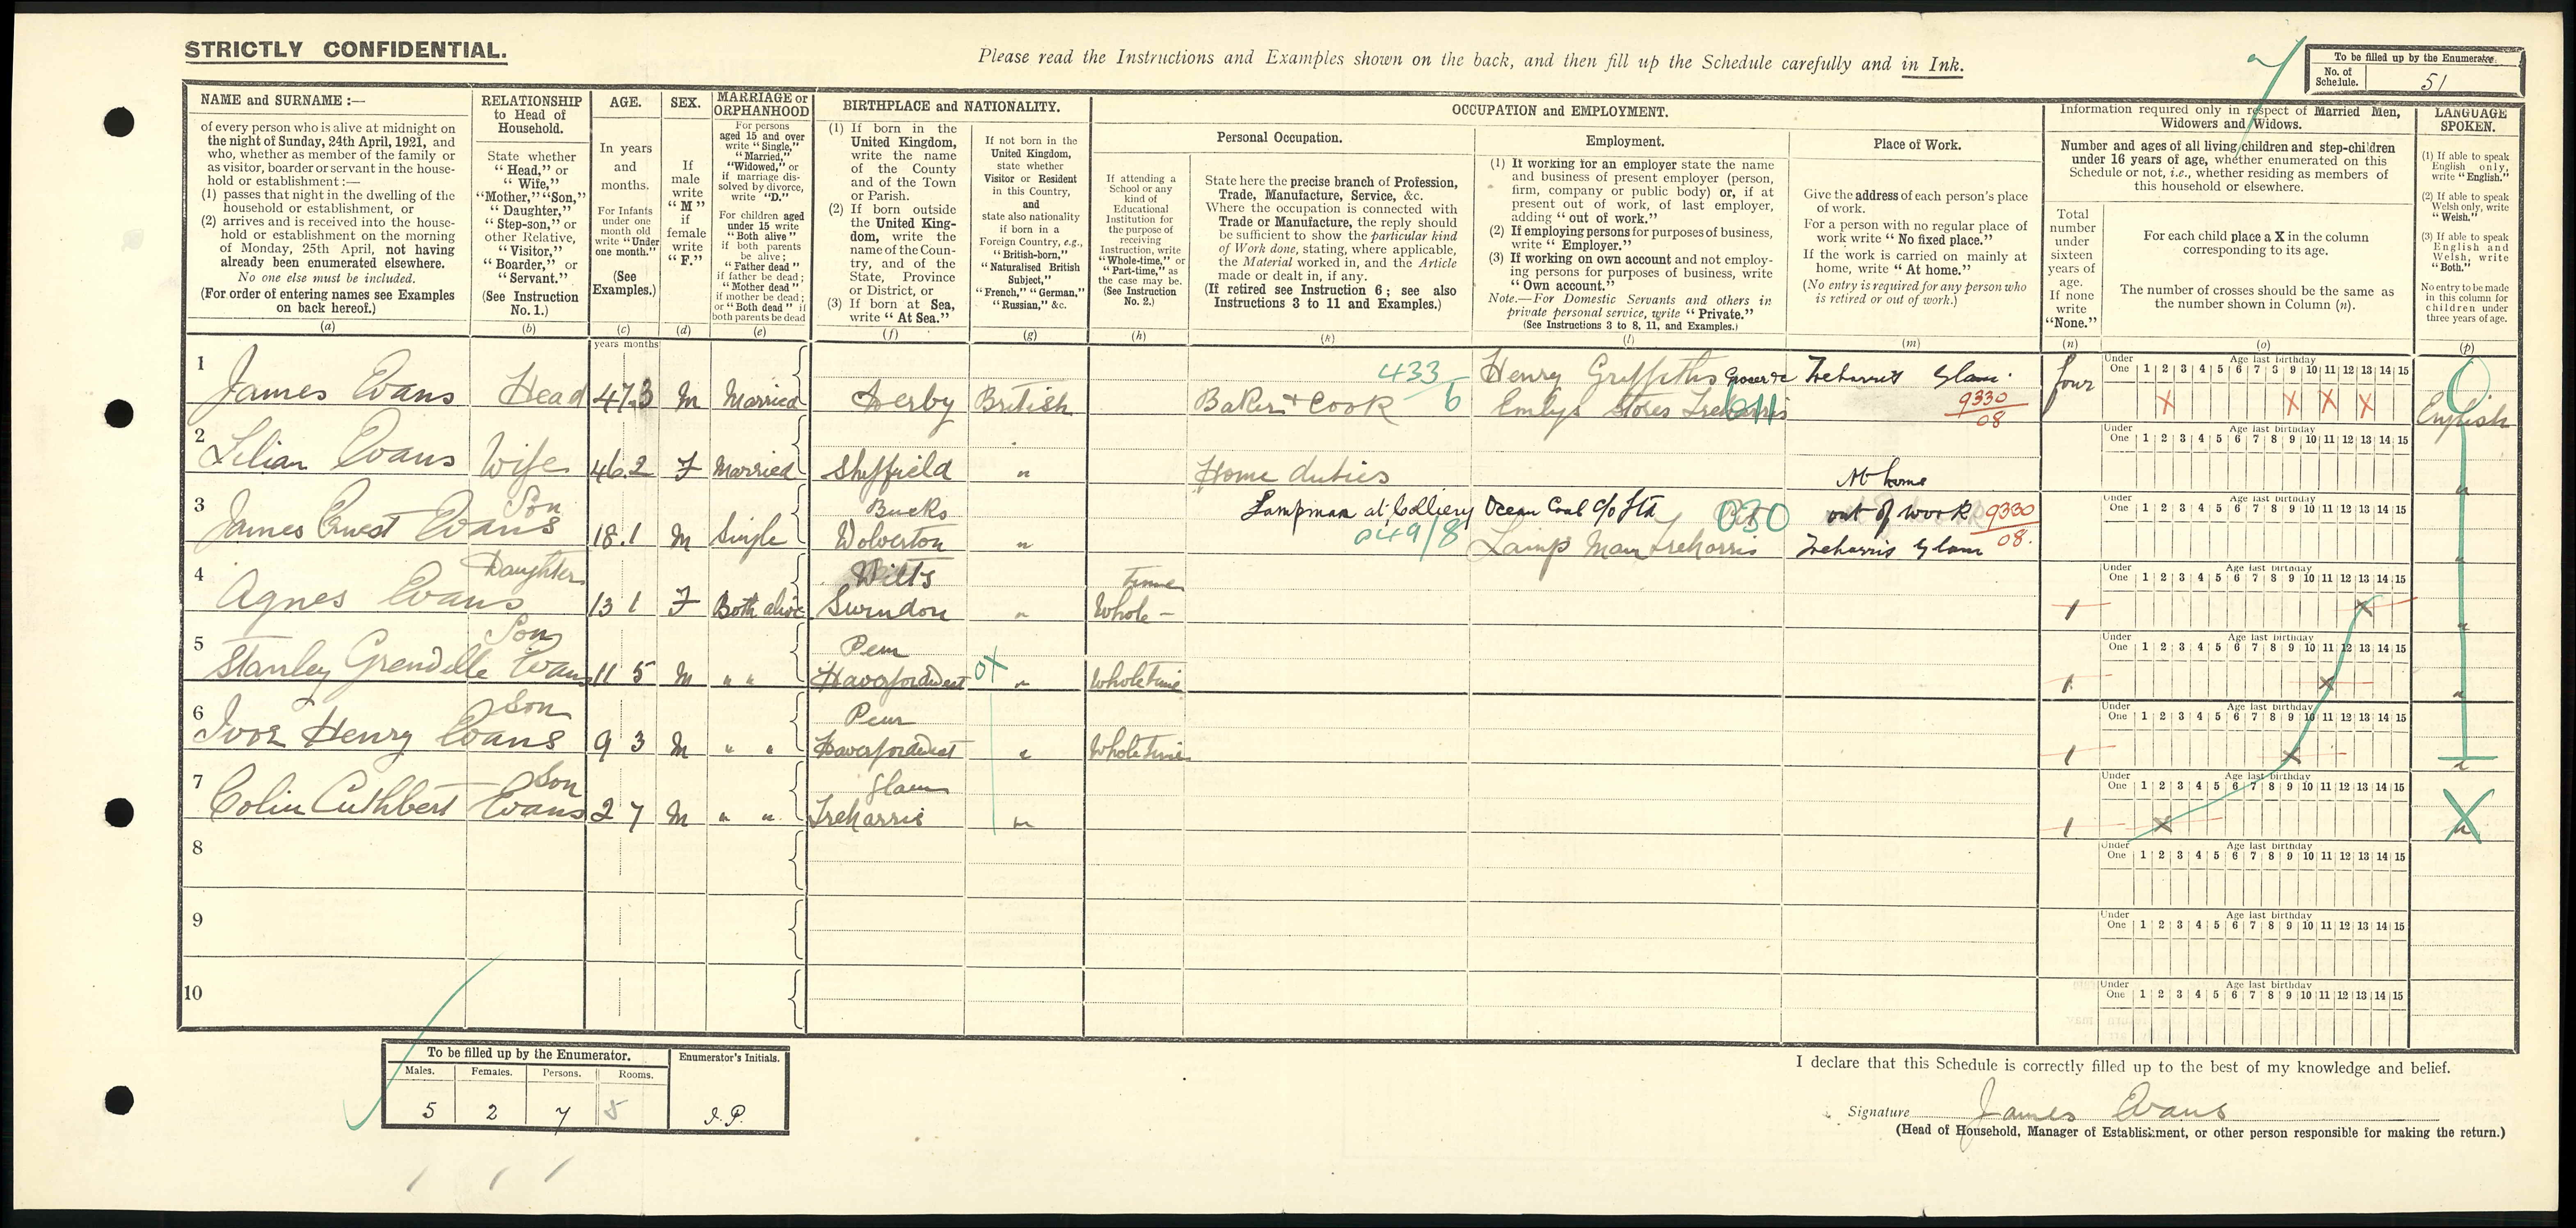 STRICTLY CONFIDENTIAL.
Please read the Instructions and Examples shown on the back, and then fill up the Schedule carefully and in Ink.
To be filled up by the Enumerator.
No. of Schedule. 51
NAME and SURNAME :—
of every person who is alive at midnight on
the night of Sunday, 24th April, 1921, and
who, whether as member of the family or
as visitor, boarder or servant in the house-
hold or establishment :—
(1) passes that night in the dwelling of the
household or establishment, or
(2) arrives and is received into the house-
hold or establishment on the morning
of Monday, 25th April, not having
already been enumerated elsewhere.
No one else must be included.
(For order of entering names see Examples
on back hereof.)
(a)
RELATIONSHIP
to Head of
Household.
State whether
"Head," or
"Wife,"
"Mother," "Son,"
"Daughter,"
"Step-son," or
other Relative,
"Visitor,"
"Boarder," or
"Servant."
(See Instruction
No. 1.)
(b)
AGE.
In years
and
months.
For Infants
under one
month old
write "Under
one month."
(See
Examples.)
(c)
SEX.
If
male
write
"M"
if
female
write
"F."
(d)
MARRIAGE or
ORPHANHOOD
For persons
aged 15 and over
write "Single,"
"Married,"
"Widowed," or
if marriage dis-
solved by divorce,
write "D."
For children aged
under 15 write
"Both alive"
if both parents
be alive;
"Father dead"
if father be dead;
"Mother dead"
if mother be dead;
or "Both dead" if
both parents be dead
(e)
BIRTHPLACE and NATIONALITY.
(1) If born in the
United Kingdom,
write the name
of the County
and of the Town
or Parish.
(2) If born outside
the United King-
dom, write the
name of the Coun-
try, and of the
State, Province
or District, or
(3) If born at Sea,
write "At Sea."
(f)
If not born in the
United Kingdom,
state whether
Visitor or Resident
in this Country,
and
state also nationality
if born in a
Foreign Country, e.g.,
"British-born,"
"Naturalised British
Subject,"
"French," "German,"
"Russian," &c.
(g)
OCCUPATION and EMPLOYMENT.
Personal Occupation.
If attending a
School or any
kind of
Educational
Institution for
the purpose of
receiving
Instruction, write
"Whole-time," or
"Part-time," as
the case may be.
(See Instruction
No. 2.)
(h)
State here the precise branch of Profession,
Trade, Manufacture, Service, &c.
Where the occupation is connected with
Trade or Manufacture, the reply should
be sufficient to show the particular kind
of Work done, stating, where applicable,
the Material worked in, and the Article
made or dealt in, if any.
(If retired see Instruction 6; see also
Instructions 3 to 11 and Examples.)
(k)
Employment.
(1) If working for an employer state the name
and business of present employer (person,
firm, company or public body) or, if at
present out of work, of last employer,
adding "out of work."
(2) If employing persons for purposes of business,
write "Employer."
(3) If working on own account and not employ-
ing persons for purposes of business, write
"Own account."
Note.—For Domestic Servants and others in
private personal service, write "Private."
(See Instructions 3 to 8, 11, and Examples.)
(l)
Place of Work.
Give the address of each person's place
of work.
For a person with no regular place of
work write "No fixed place."
If the work is carried on mainly at
home, write "At home."
(No entry is required for any person who
is retired or out of work.)
(m)
Information required only in respect of Married Men,
Widowers and Widows.
Number and ages of all living children and step-children
under 16 years of age, whether enumerated on this
Schedule or not, i.e., whether residing as members of
this household or elsewhere.
Total
number
under
sixteen
years of
age.
If none
write
"None."
(n)
For each child place a X in the column
corresponding to its age.
The number of crosses should be the same as
the number shown in Column (n).
(o)
LANGUAGE
SPOKEN.
(1) If able to speak
English only,
write "English."
(2) If able to speak
Welsh only, write
"Welsh."
(3) If able to speak
English and
Welsh, write
"Both."
No entry to be made
in this column for
children under
three years of age.
(p)
years months
1 James Evans Head 47 3 M Married Derby British Baker + Cook 433/6 Henry Griffiths Grocer &c Emlys Stores Treharris 611 Treharris Glam. 9330/08 four X X X X English
Under One 1 2 3 4 5 6 7 8 9 10 11 12 13 14 15 Age last birthday
2 Lilian Evans Wife 46 2 F Married Sheffield " Home duties At home
Under One 1 2 3 4 5 6 7 8 9 10 11 12 13 14 15 Age last birthday "
3 James Ernest Evans Son 18 1 M Single Bucks Wolverton " Lampman at Colliery 049/8 Ocean Coal C/o Ltd 030 Lamp Man Treharris out of work Treharris Glam 9330/08.
Under One 1 2 3 4 5 6 7 8 9 10 11 12 13 14 15 Age last birthday "
4 Agnes Evans Daughter 13 1 F Both alive Wilts Swindon " Whole - Time 1 X
Under One 1 2 3 4 5 6 7 8 9 10 11 12 13 14 15 Age last birthday "
5 Stanley Grendelle Evans Son 11 5 M " " Pem Haverfordwest OX " Whole Time 1 X
Under One 1 2 3 4 5 6 7 8 9 10 11 12 13 14 15 Age last birthday "
6 Ivor Henry Evans Son 9 3 M " " Pem Haverfordwest " Whole Time 1 X
Under One 1 2 3 4 5 6 7 8 9 10 11 12 13 14 15 Age last birthday "
7 Colin Cuthbert Evans Son 2 7 M " " Glam Treharris " 1 X
Under One 1 2 3 4 5 6 7 8 9 10 11 12 13 14 15 Age last birthday "
8
Under One 1 2 3 4 5 6 7 8 9 10 11 12 13 14 15 Age last birthday
9
Under One 1 2 3 4 5 6 7 8 9 10 11 12 13 14 15 Age last birthday
10
Under One 1 2 3 4 5 6 7 8 9 10 11 12 13 14 15 Age last birthday
To be filled up by the Enumerator. Enumerator's Initials.
Males. Females. Persons. Rooms.
5 2 7 5 J.P.
I declare that this Schedule is correctly filled up to the best of my knowledge and belief.
Signature James Evans
(Head of Household, Manager of Establishment, or other person responsible for making the return.)